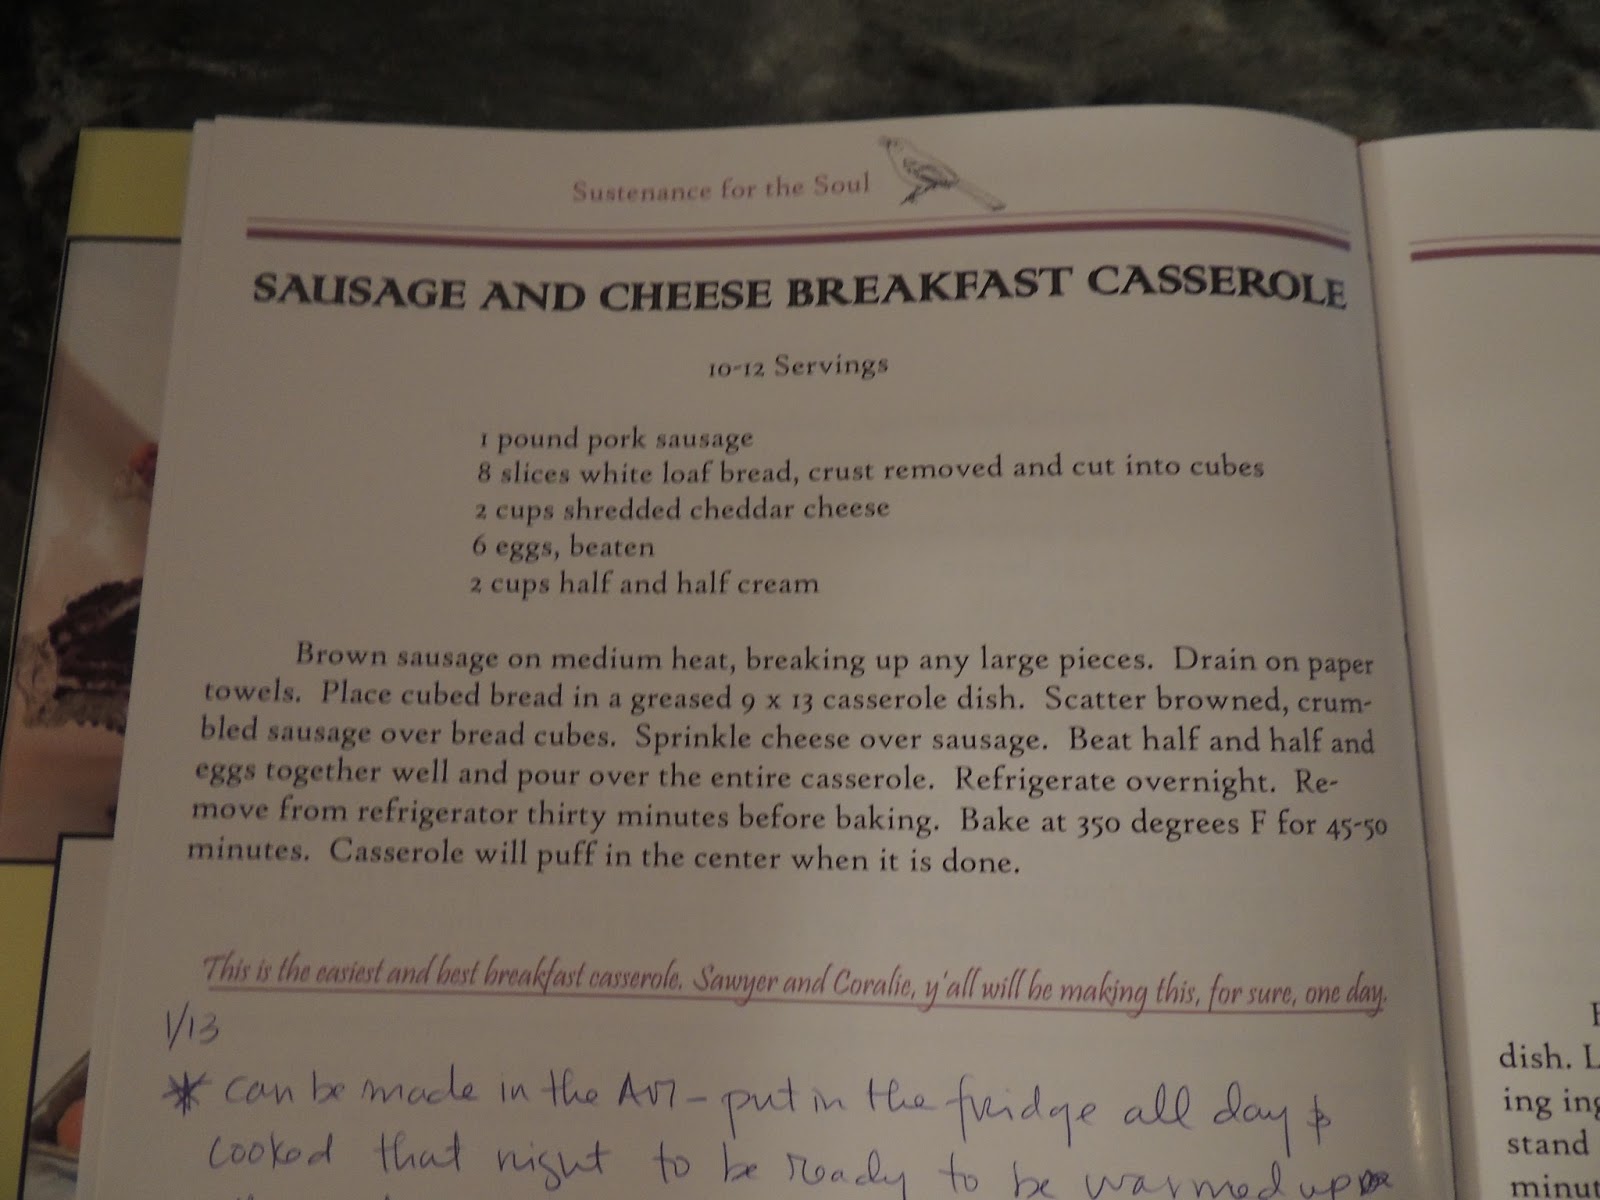 Sustenance for the Soul
SAUSAGE AND CHEESE BREAKFAST CASSEROLE
10-12 Servings
1 pound pork sausage
8 slices white loaf bread, crust removed and cut into cubes
2 cups shredded cheddar cheese
6 eggs, beaten
2 cups half and half cream
Brown sausage on medium heat, breaking up any large pieces. Drain on paper
towels. Place cubed bread in a greased 9 x 13 casserole dish. Scatter browned, crum-
bled sausage over bread cubes. Sprinkle cheese over sausage. Beat half and half and
eggs together well and pour over the entire casserole. Refrigerate overnight. Re-
move from refrigerator thirty minutes before baking. Bake at 350 degrees F for 45-50
minutes. Casserole will puff in the center when it is done.
This is the easiest and best breakfast casserole. Sawyer and Coralie, y'all will be making this, for sure, one day.
1/13
* can be made in the AM - put in the fridge all day &
cooked that night to be ready to be warmed up
dish. L
ing ing
stand
minut